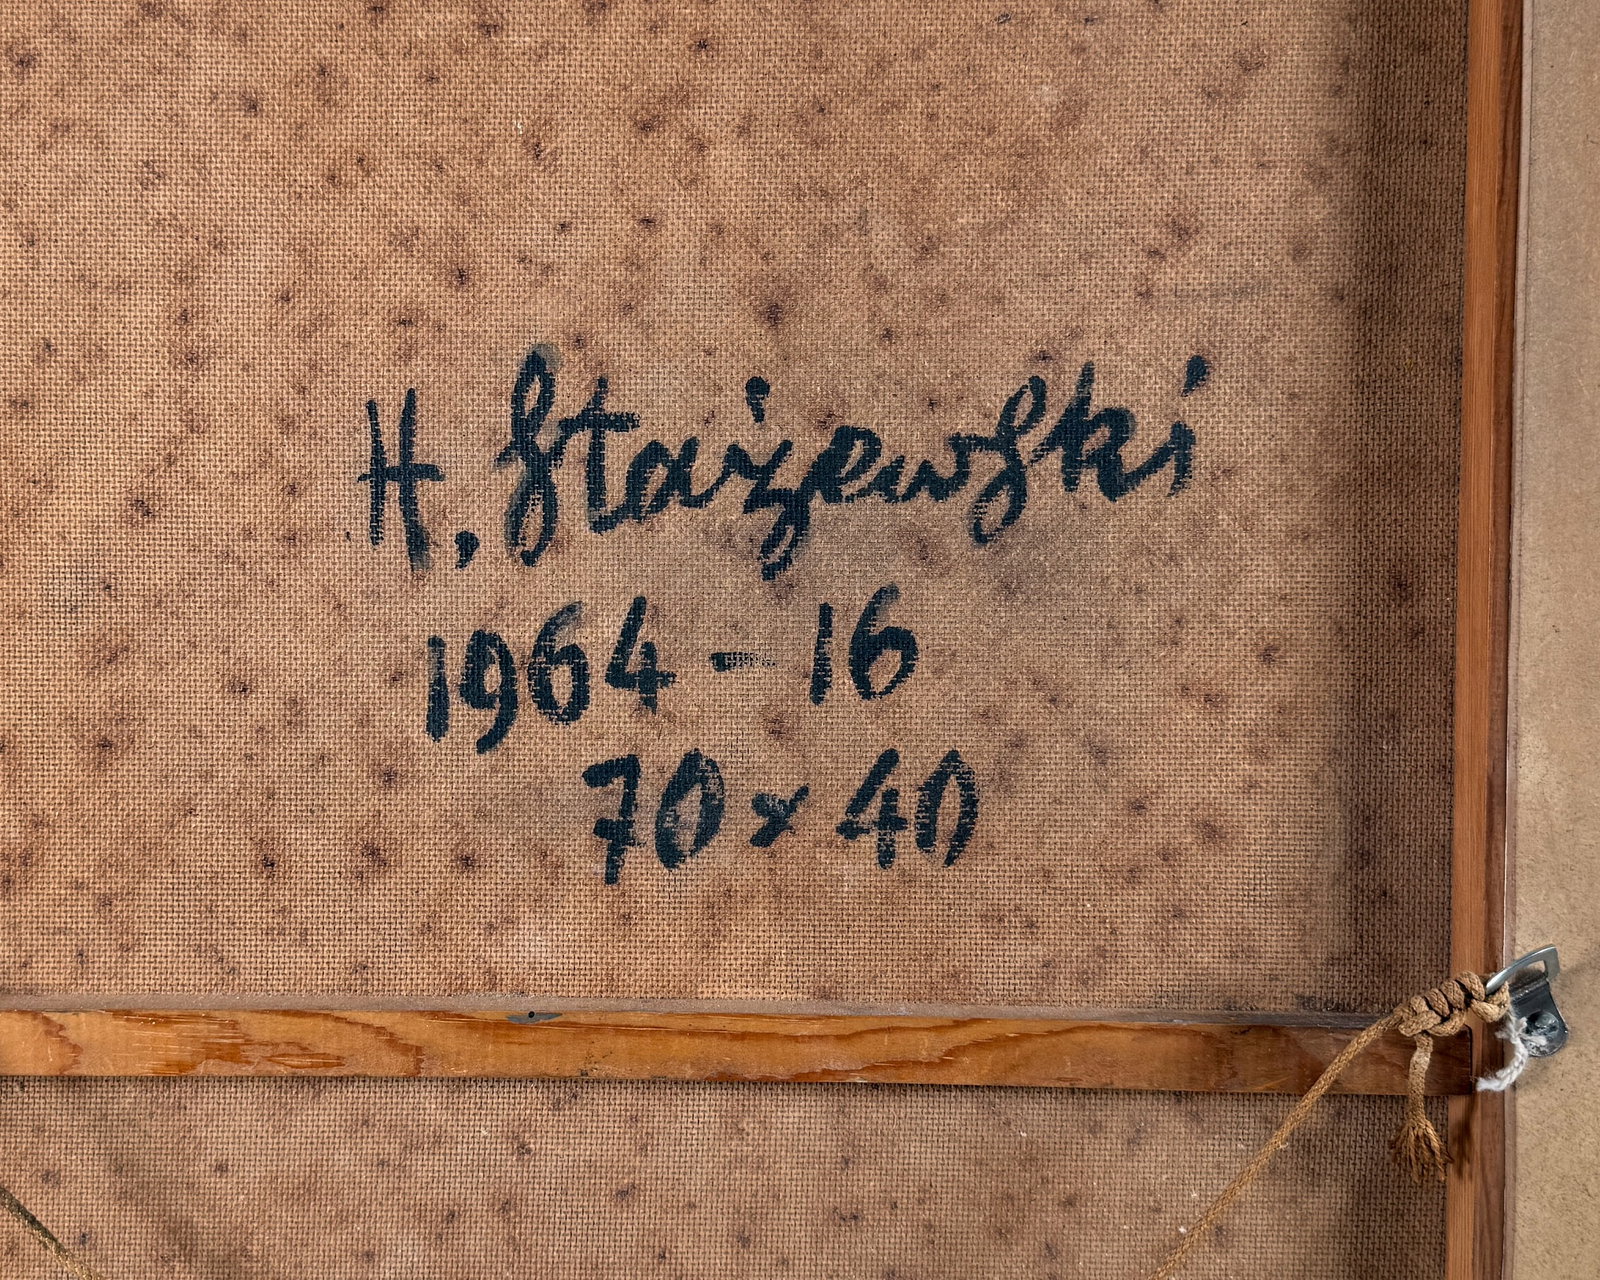 H. Stażewski
1964 - 16
70 x 40